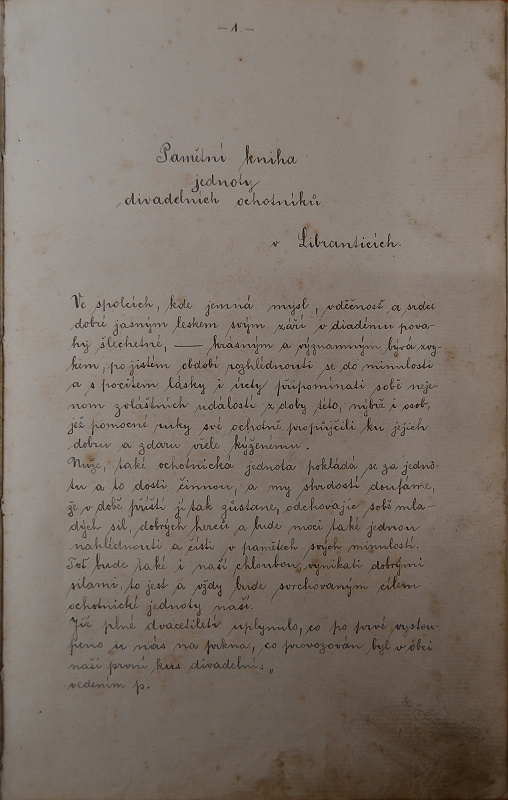 - 1. -
Pamětní kniha
jednoty
divadelních ochotníků
v Libranticích.
Ve spolcích, kde jemná mysl, vděčnost a srdce
dobré jasným leskem svým září v diadému pova-
hy šlechetné, — krásným a významným bývá zvy-
kem, po jistém období rozhlédnouti se do minulosti
a s pocitem lásky i úcty připomínati sobě neje-
nom zvláštních událostí z doby této, nýbrž i osob,
jež pomocné ruky své ochotně propůjčili ku jejich
dobru a zdaru vřele kýženému.
Nuže, také ochotnická jednota pokládá se za jedno-
tu a to dosti činnou, a my s tvrdostí doufáme,
že v době příští jí tak zůstane, odchovajíc sobě mla-
dých sil, dobrých herců a bude moci také jednou
nahlédnouti a čísti v pamětech svých minulostí.
Toť bude také i naší chloubou, vynikati dobrými
silami, to jest a vždy bude svrchovaným cílem
ochotnické jednoty naší.
Již plné dvacetiletí uplynulo, co po prvé vystou-
peno u nás na prkna, co provozován byl v obci
naší první kus divadelní: „
vedením p.